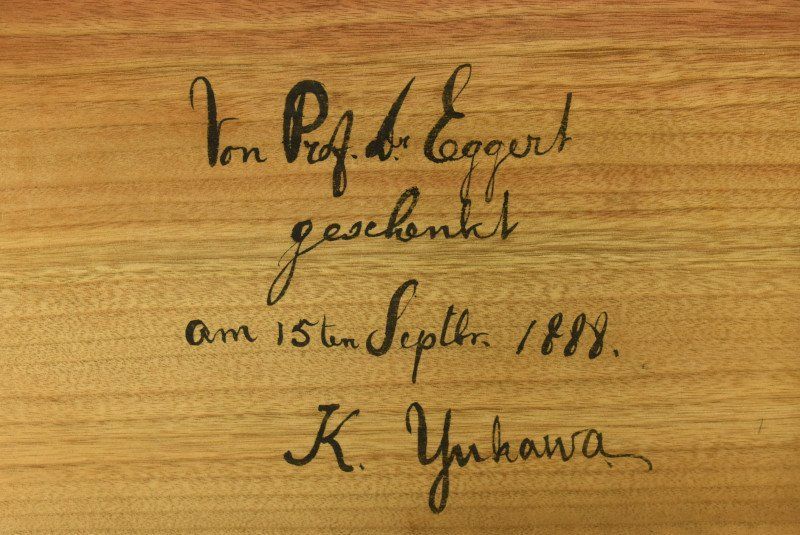 Von Prof. Dr. Eggert
geschenkt
am 15ten Septbr. 1888.
K. Yukawa